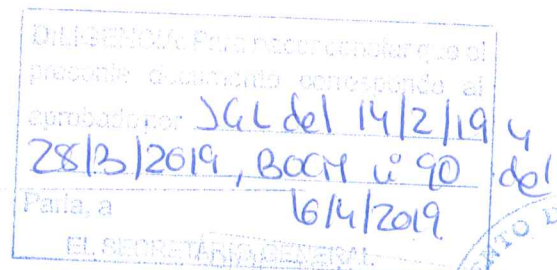 DILIGENCIA: Para hacer constar que el
presente documento corresponde al
aprobado por JGL del 14/2/19 y
28/3/2019, BOCM nº 90 del
Parla, a 16/4/2019
EL SECRETARIO GENERAL